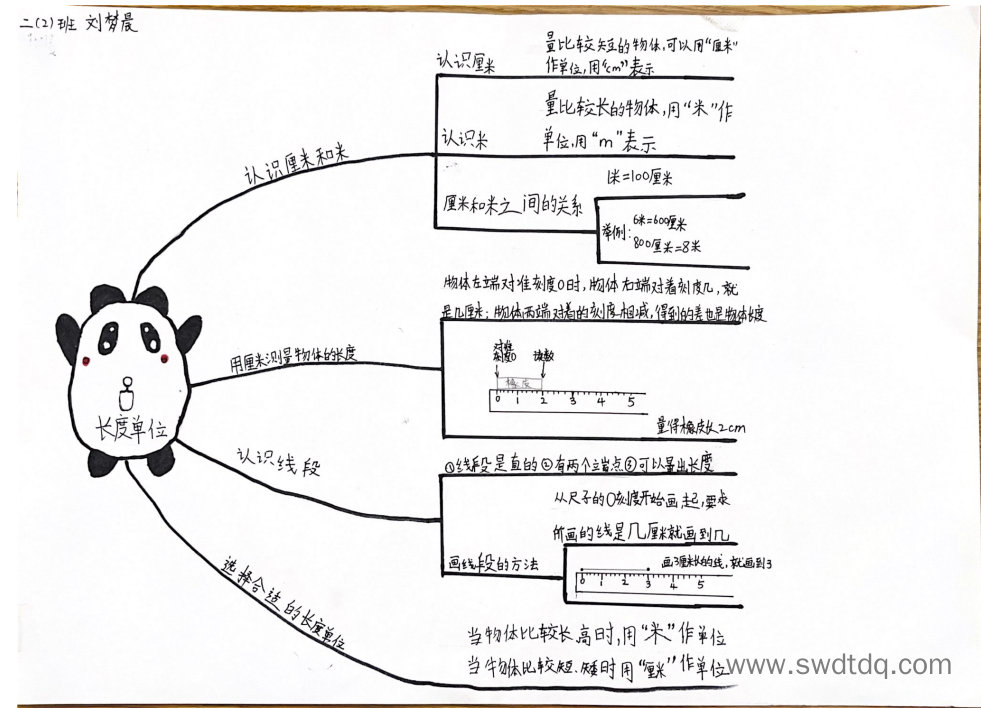 二(2)班 刘梦晨
认识厘米和米
认识厘米
量比较短的物体,可以用“厘米”
作单位,用“cm”表示
认识米
量比较长的物体,用“米”作
单位,用“m”表示
厘米和米之间的关系
1米=100厘米
举例:
6米=600厘米
800厘米=8米
长度单位
用厘米测量物体的长度
物体左端对准刻度0时,物体右端对着刻度几,就
是几厘米;物体两端对着的刻度相减,得到的差也是物体长度
对准
刻度0
读数
橡皮
0 1 2 3 4 5
量得橡皮长2cm
认识线段
①线段是直的②有两个端点③可以量出长度
画线段的方法
从尺子的0刻度开始画起,要求
所画的线是几厘米就画到几
画3厘米长的线,就画到3
0 1 2 3 4 5
选择合适的长度单位
当物体比较长、高时,用“米”作单位
当物体比较短、矮时用“厘米”作单位
www.swdtdq.com